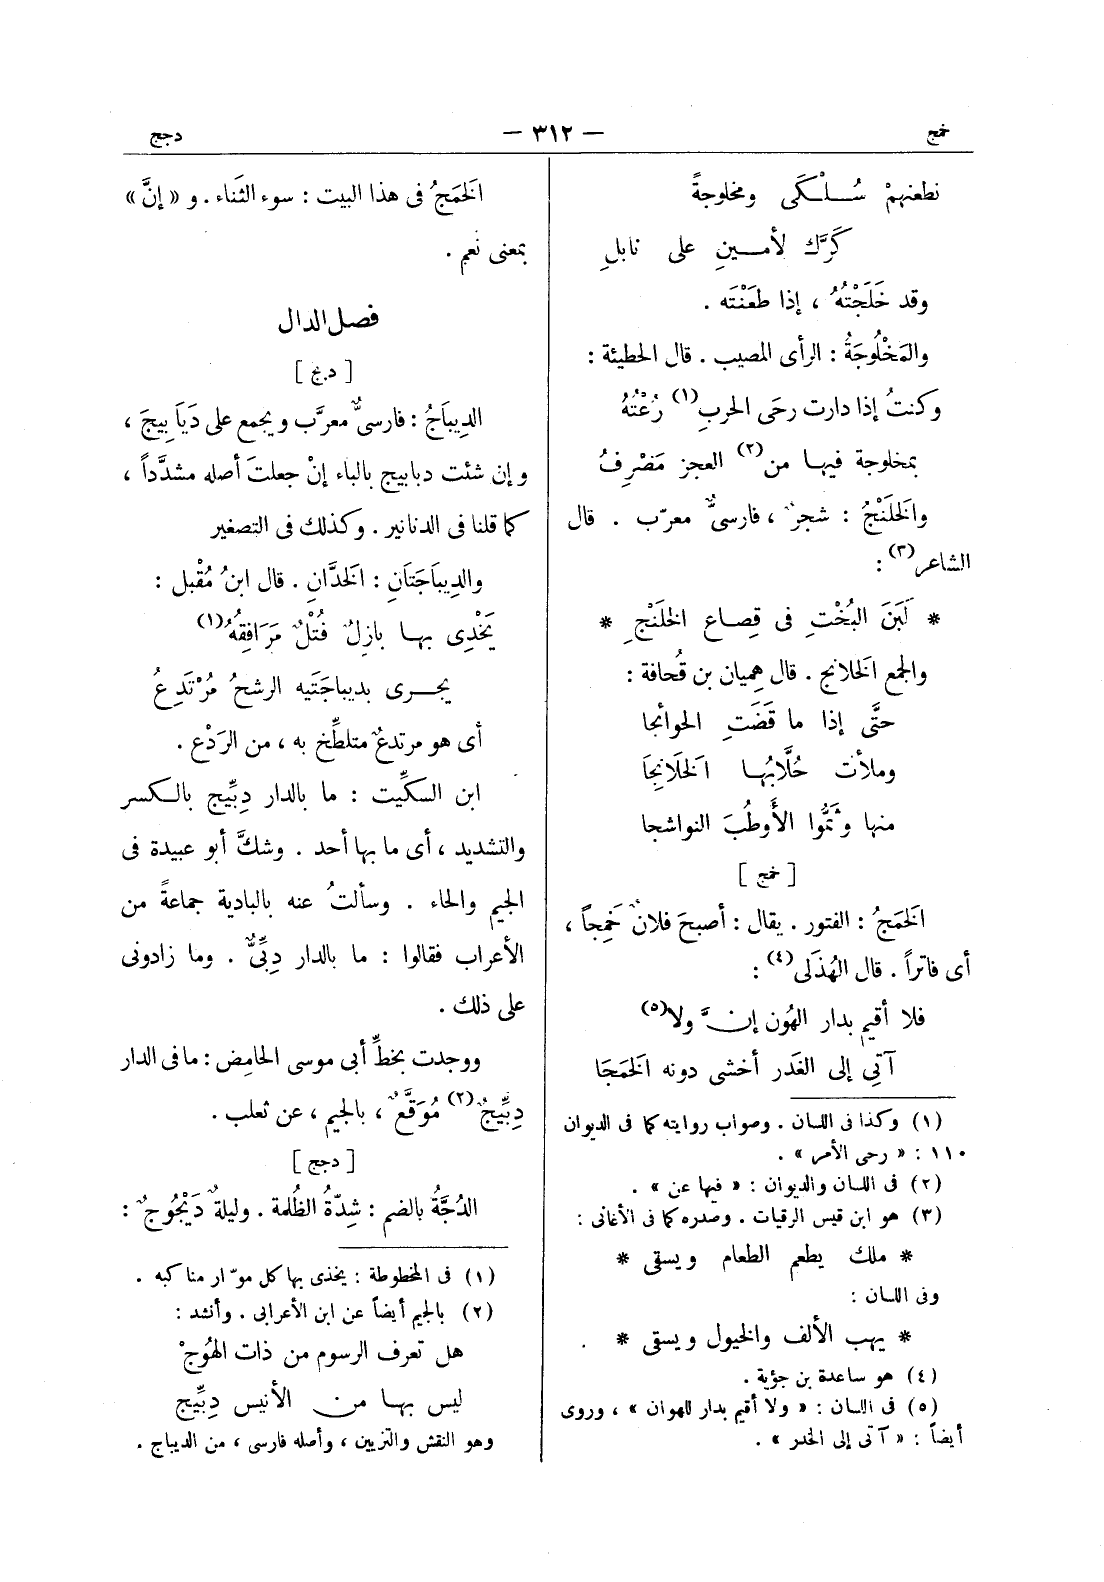 خمج
— ٣١٢ —
دجج
نطعنهمْ سُلْكَى ومخلوجةً
كَرَّكَ لأمينِ على نابلِ
وقد خَلَجْتُهُ ، إذا طعَنْتَه .
والمَخْلُوجَةُ : الرأى المصيب . قال الحطيئة :
وكنتُ إذا دارت رحَى الحربِ(١) رُعْتُهُ
بمخلوجة فيها من(٢) العجز مَصْرِفُ
والخَلَنْجُ : شجرٌ ، فارسىٌّ معرّب . قال
الشاعر(٣) :
* لَبَنَ البُخْتِ فى قِصاع الخلَنْجِ *
والجمع الخَلانج . قال هِميان بن قُحافة :
حتَّى إذا ما قَضَتِ الحوائجا
وملأت حُلَّابُها الخَلَانِجَا
منها وثَمُّوا الأَوطُبَ النواشجا
[ خمج ]
الخَمَجُ : الفتور . يقال : أصبحَ فلانٌ خَمِجاً ،
أى فاتراً . قال الهُذَلى(٤) :
فلا أقيم بدار الهُون إنَّ ولا(٥)
آتى إلى الغَدر أخشى دونه الخَمَجَا
(١) وكذا فى اللسان . وصواب روايته كما فى الديوان
١١٠ : « رحى الأمر » .
(٢) فى اللسان والديوان : « فيها عن » .
(٣) هو ابن قيس الرقيات . وصدره كما فى الأغانى :
* ملك يطعم الطعام ويسقى *
وفى اللسان :
* يهب الألف والخيول ويسقى *
(٤) هو ساعدة بن جؤية .
(٥) فى اللسان : « ولا أقيم بدار للهوان » ، وروى
أيضاً : « آتى إلى الخدر » .
الخَمَجُ فى هذا البيت : سوء الثَناء . و « إنَّ »
بمعنى نَعم .
فصل الدال
[ دبج ]
الدِيباَجُ : فارسىٌّ معرَّب ويجمع على دَيَاَبِيجَ ،
وإن شئت دبابيج بالباء إنْ جعلتَ أصله مشدَّداً ،
كما قلنا فى الدنانير . وكذلك فى التصغير
والدِيباَجَتَانِ : الخدَّانِ . قال ابنُ مُقْبل :
يَخْدِى بها بازِلٌ فُتْلٌ مَرَافِقُهُ(١)
يجرى بديباجَتَيه الرشحُ مُرْتَدِعُ
أى هو مرتدعٌ متلطِّخ به ، من الرَدْع .
ابن السكِّيت : ما بالدار دِبِّيج بالكسر
والتشديد ، أى ما بها أحد . وشكَّ أبو عبيدة فى
الجيم والحاء . وسألتُ عنه بالبادية جماعةً من
الأعراب فقالوا : ما بالدار دِبِّىٌّ . وما زادونى
على ذلك .
ووجدت بخطِّ أبى موسى الحامِض : ما فى الدار
دِبِّيجٌ(٢) مُوَقَّعٌ ، بالجيم ، عن ثعلب .
[ دجج ]
الدُجَّةُ بالضم : شِدّةُ الظُلمة . وليلةٌ دَيْجُوجٌ :
(١) فى المخطوطة : يخذى بها كل موّار مناكبه .
(٢) بالجيم أيضاً عن ابن الأعرابى . وأنشد :
هل تعرف الرسوم من ذات الهُوجْ
ليس بها من الأنيس دِبِّيج
وهو النقش والتزيين ، وأصله فارسى ، من الديباج .